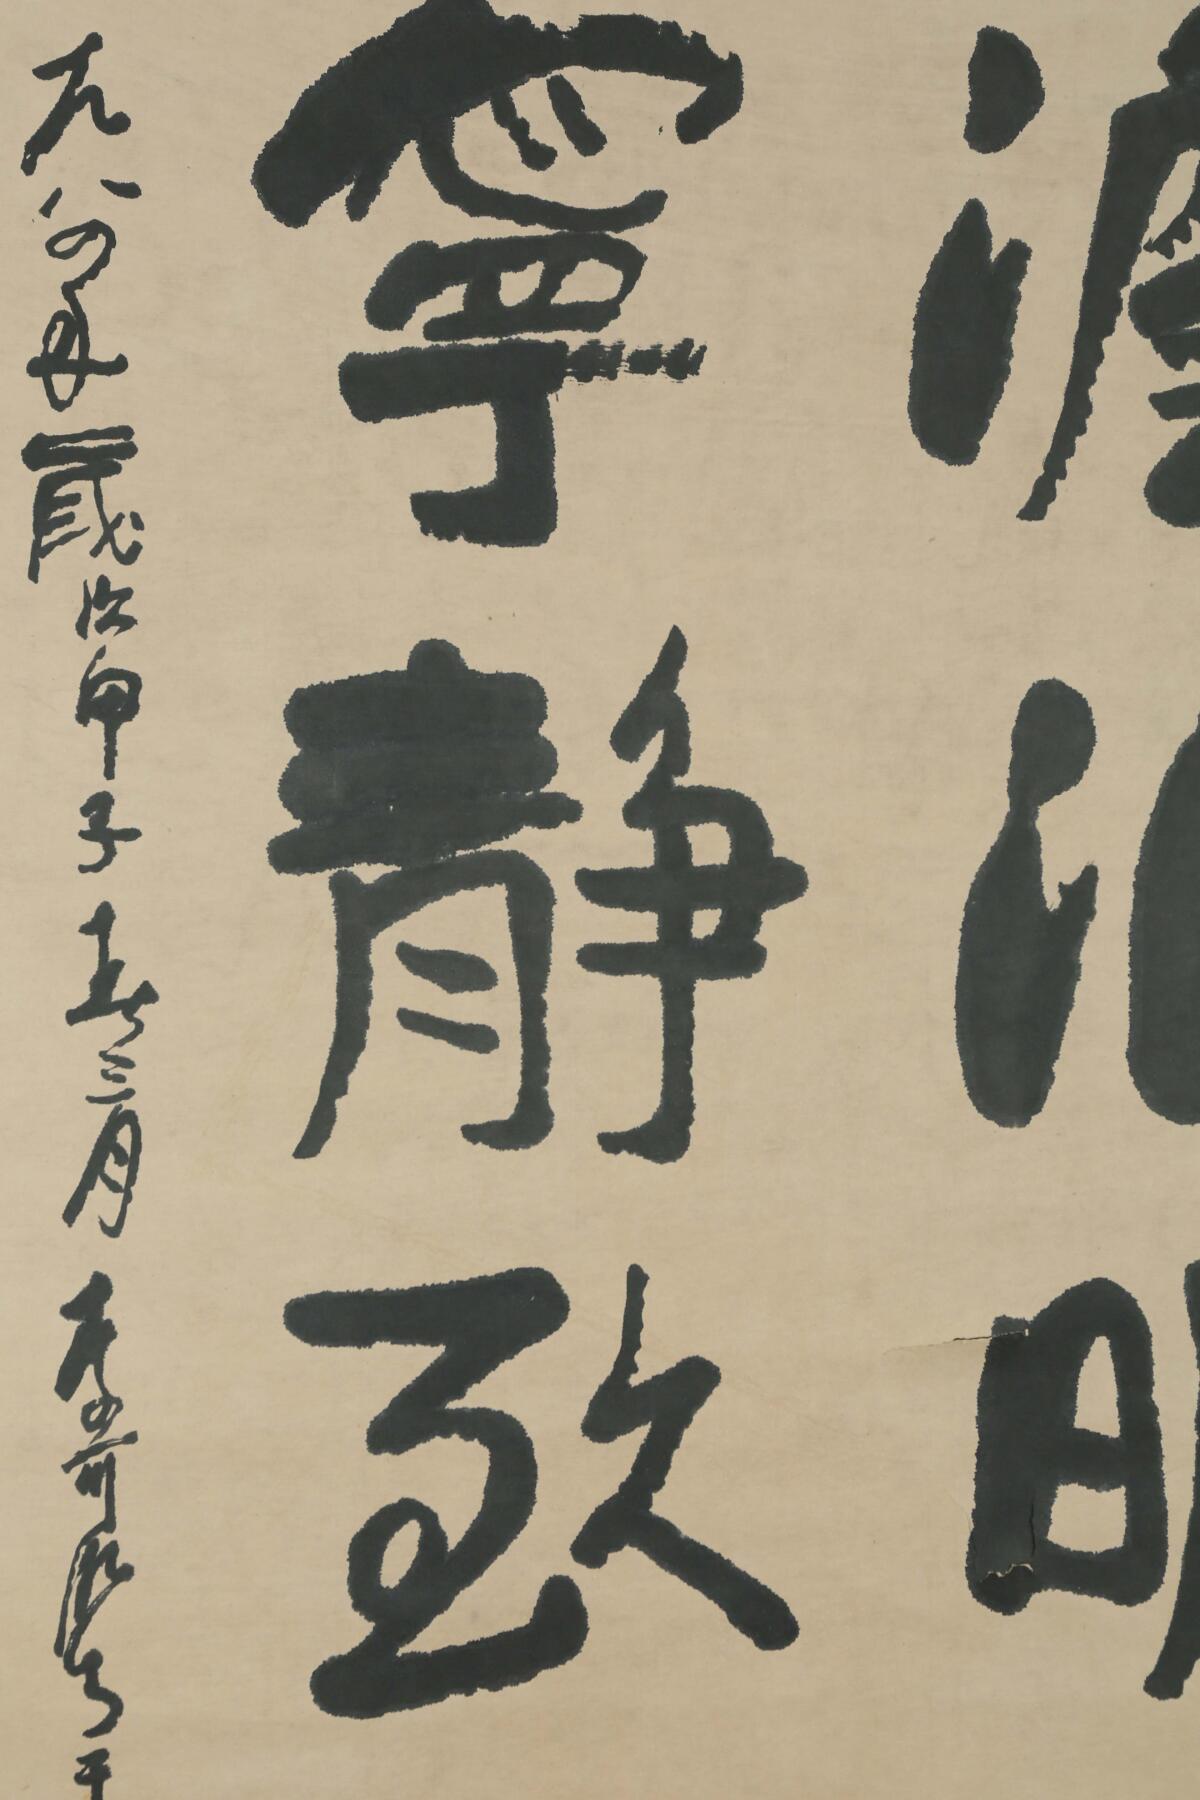 澹泊明
寧靜致
九八四年歲次甲子春三月